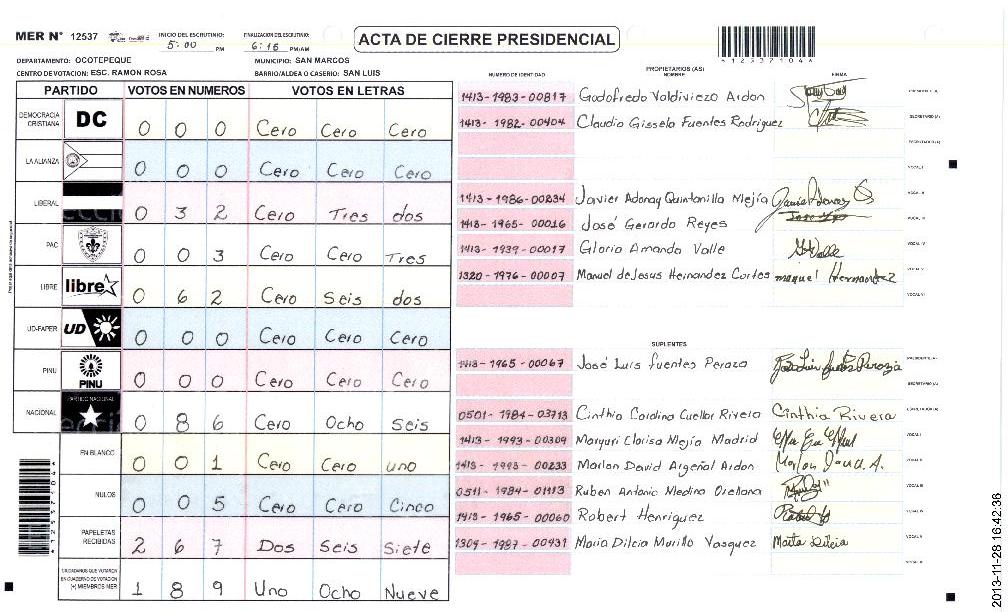 MER N° 12537
INICIO DEL ESCRUTINIO: 5:00 PM
FINALIZACION DEL ESCRUTINIO: 6:16 PM/AM
ACTA DE CIERRE PRESIDENCIAL
4125371044
DEPARTAMENTO: OCOTEPEQUE
MUNICIPIO: SAN MARCOS
CENTRO DE VOTACION: ESC. RAMON ROSA
BARRIO/ALDEA O CASERIO: SAN LUIS
PARTIDO VOTOS EN NUMEROS VOTOS EN LETRAS
DEMOCRACIA CRISTIANA DC 0 0 0 Cero Cero Cero
LA ALIANZA 0 0 0 Cero Cero Cero
LIBERAL 0 3 2 Cero Tres dos
PAC 0 0 3 Cero Cero Tres
LIBRE libre 0 6 2 Cero Seis dos
UD-FAPER UD 0 0 0 Cero Cero Cero
PINU PINU 0 0 0 Cero Cero Cero
NACIONAL PARTIDO NACIONAL 0 8 6 Cero Ocho Seis
EN BLANCO 0 0 1 Cero Cero uno
NULOS 0 0 5 Cero Cero Cinco
PAPELETAS RECIBIDAS 2 6 7 Dos Seis Siete
CIUDADANOS QUE VOTARON EN CUADERNO DE VOTACION (+) MIEMBROS MER 1 8 9 Uno Ocho Nueve
NUMERO DE IDENTIDAD PROPIETARIOS (AS) NOMBRE FIRMA
1413-1983-00817 Godofredo Valdiviezo Ardon PRESIDENTE (A)
1413-1982-00404 Claudia Gissela Fuentes Rodriguez SECRETARIO (A)
ESCRUTADOR (A)
VOCAL I
1413-1986-00234 Javier Adonay Quintanilla Mejía VOCAL II
1413-1965-00016 José Gerardo Reyes VOCAL III
1413-1939-00017 Gloria Amanda Valle VOCAL IV
1320-1976-00007 Manuel de Jesus Hernandez Cortes manuel Hernandez VOCAL V
VOCAL VI
SUPLENTES
1413-1965-00067 José Luis fuentes Peraza PRESIDENTE (A)
SECRETARIO (A)
0501-1984-03713 Cinthia Carolina Cuellar Rivera Cinthia Rivera ESCRUTADOR (A)
1413-1993-00309 Maryuri Clarisa Mejía Madrid VOCAL I
1413-1993-00233 Marlon David Argeñal Ardon Marlon David A. VOCAL II
0511-1984-01113 Ruben Antonio Medina Orellana VOCAL III
1413-1965-00060 Robert Henriquez VOCAL IV
1309-1987-00431 Maria Dilcia Murillo Vasquez Maria Dilcia VOCAL V
VOCAL VI
4125371044
2013-11-28 16:42:36